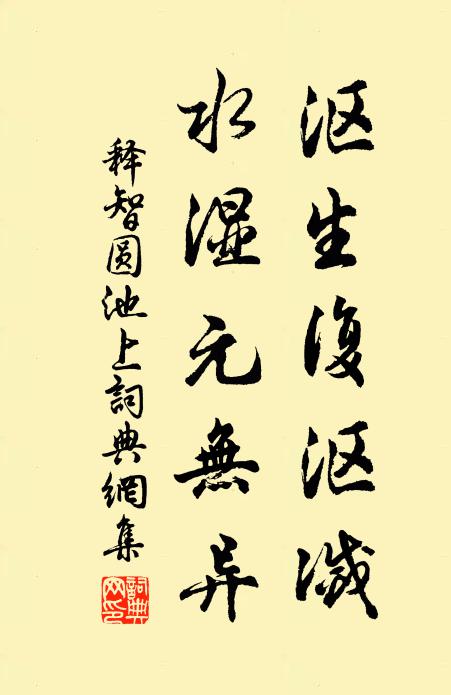 沤生复沤滅
水湿元無异
释智圆池上詞典網集
詞典网印